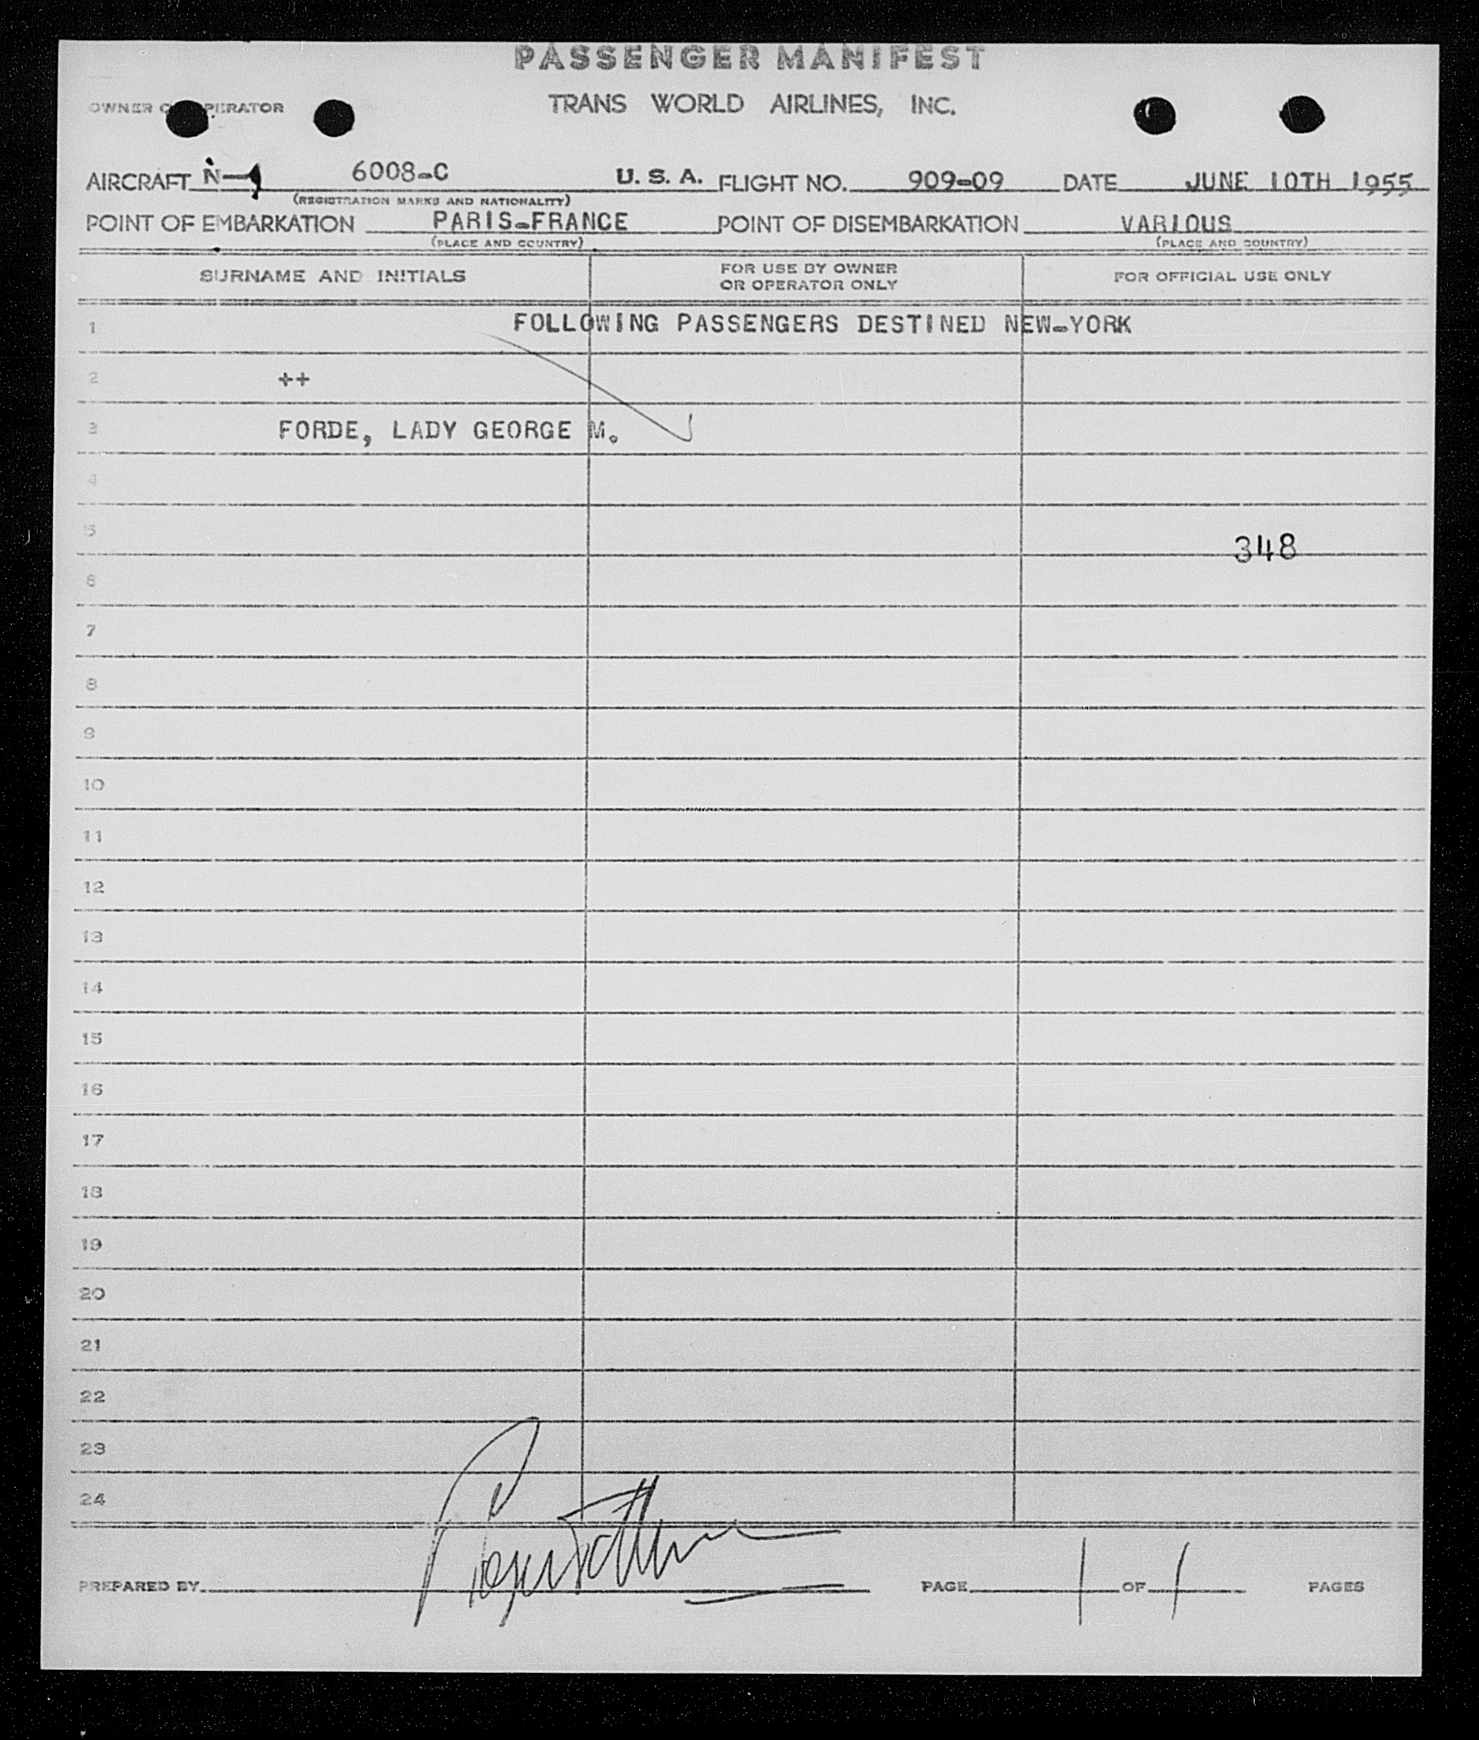 PASSENGER MANIFEST
OWNER O PERATOR TRANS WORLD AIRLINES, INC.
AIRCRAFT N- 6008-C U. S. A. FLIGHT NO. 909-09 DATE JUNE 10TH 1955
(REGISTRATION MARKS AND NATIONALITY)
POINT OF EMBARKATION PARIS-FRANCE POINT OF DISEMBARKATION VARIOUS
(PLACE AND COUNTRY) (PLACE AND COUNTRY)
SURNAME AND INITIALS FOR USE BY OWNER OR OPERATOR ONLY FOR OFFICIAL USE ONLY
1 FOLLOWING PASSENGERS DESTINED NEW-YORK
2 ++
3 FORDE, LADY GEORGE M.
4
5 348
6
7
8
9
10
11
12
13
14
15
16
17
18
19
20
21
22
23
24
PREPARED BY PAGE 1 OF 1 PAGES